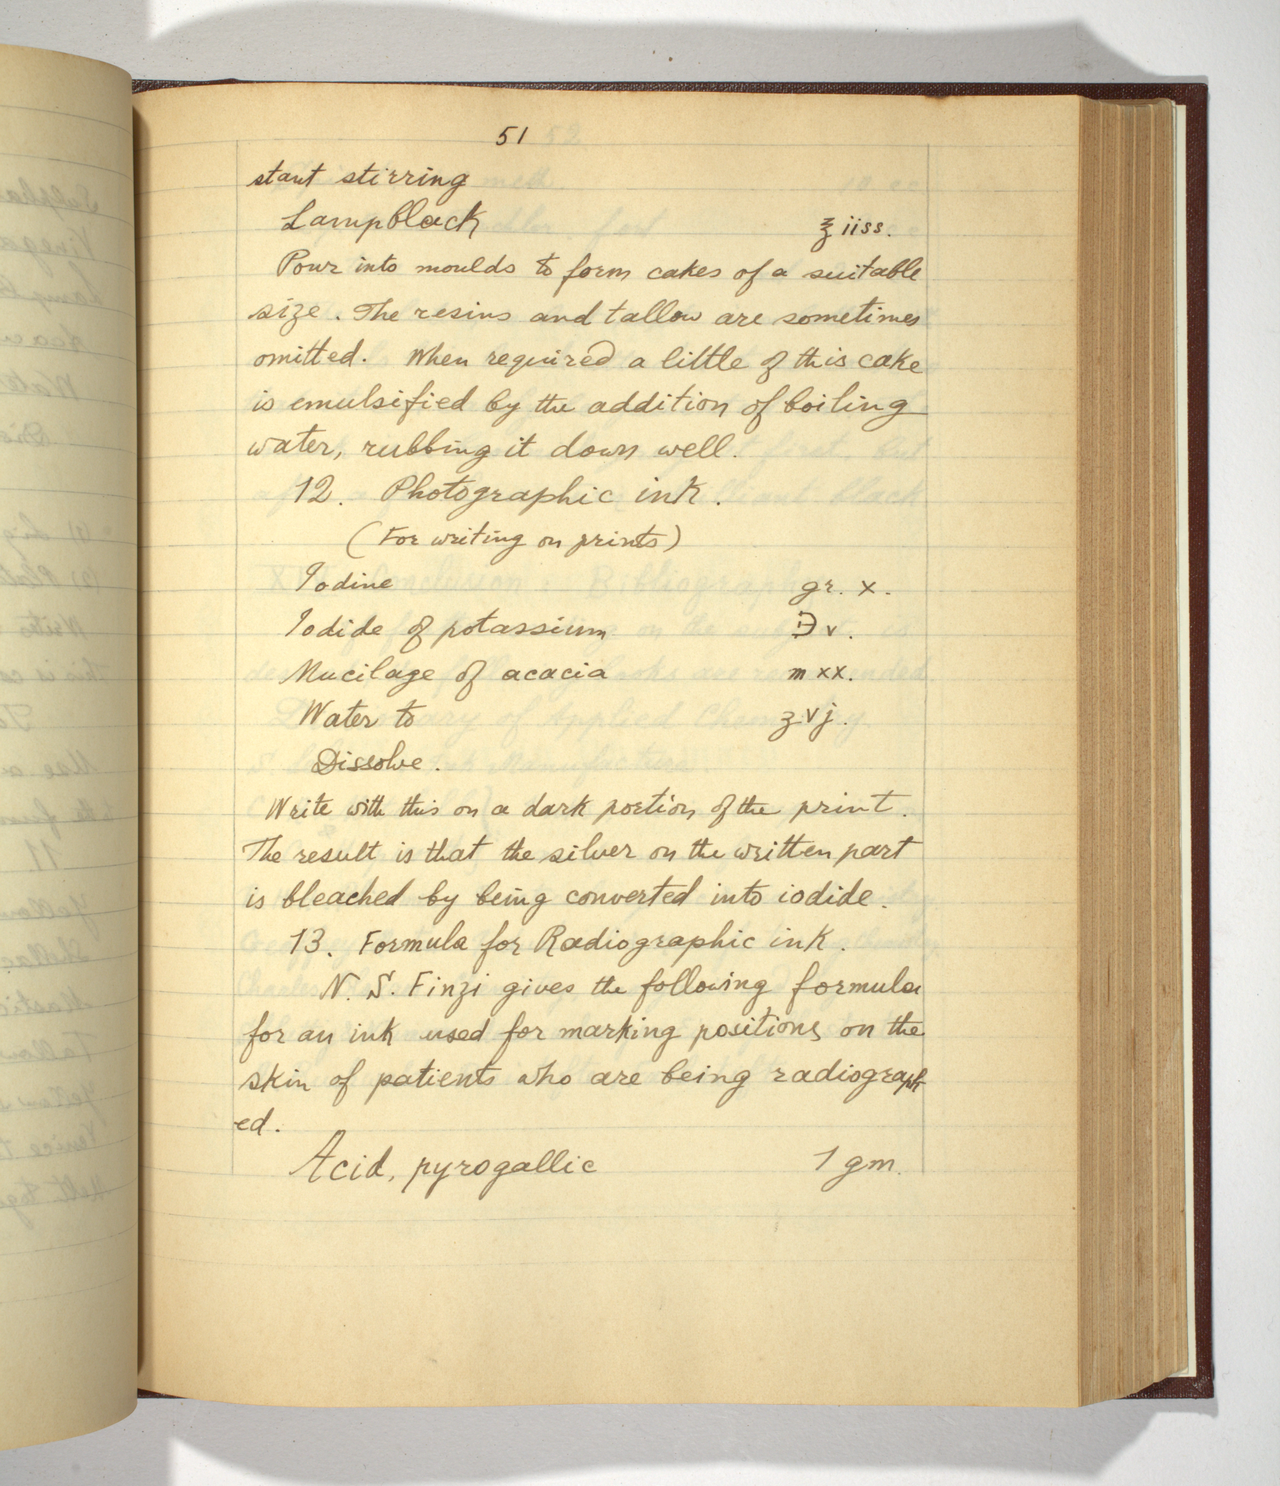 51
stant stirring
Lampblack ℥ iiss.
Pour into moulds to form cakes of a suitable
size. The resins and tallow are sometimes
omitted. When required a little of this cake
is emulsified by the addition of boiling
water, rubbing it down well.
12. Photographic ink.
(For writing on prints)
Iodine gr. x.
Iodide of potassium ℈ v.
Mucilage of acacia m xx.
Water to ʒ vj.
Dissolve.
Write with this on a dark portion of the print.
The result is that the silver on the written part
is bleached by being converted into iodide.
13. Formula for Radiographic ink.
N. S. Finzi gives the following formula
for an ink used for marking positions on the
skin of patients who are being radiograph
ed.
Acid, pyrogallic 1 gm.